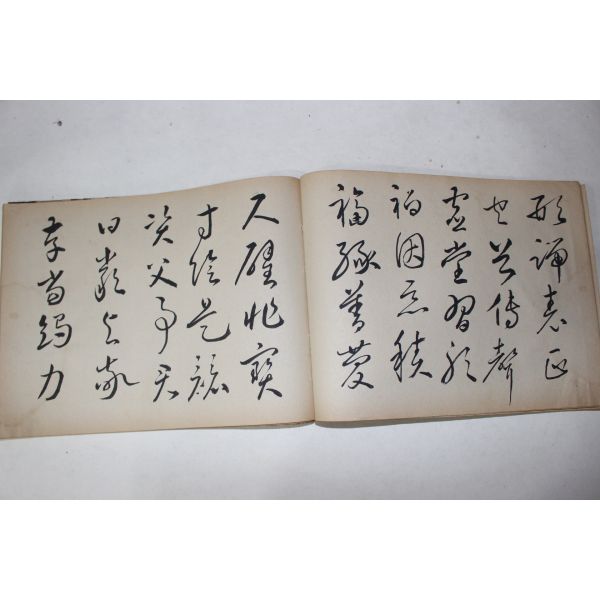 形端表正
空谷傳聲
虛堂習聽
禍因惡積
福緣善慶
尺璧非寶
寸陰是競
資父事君
曰嚴與敬
孝當竭力